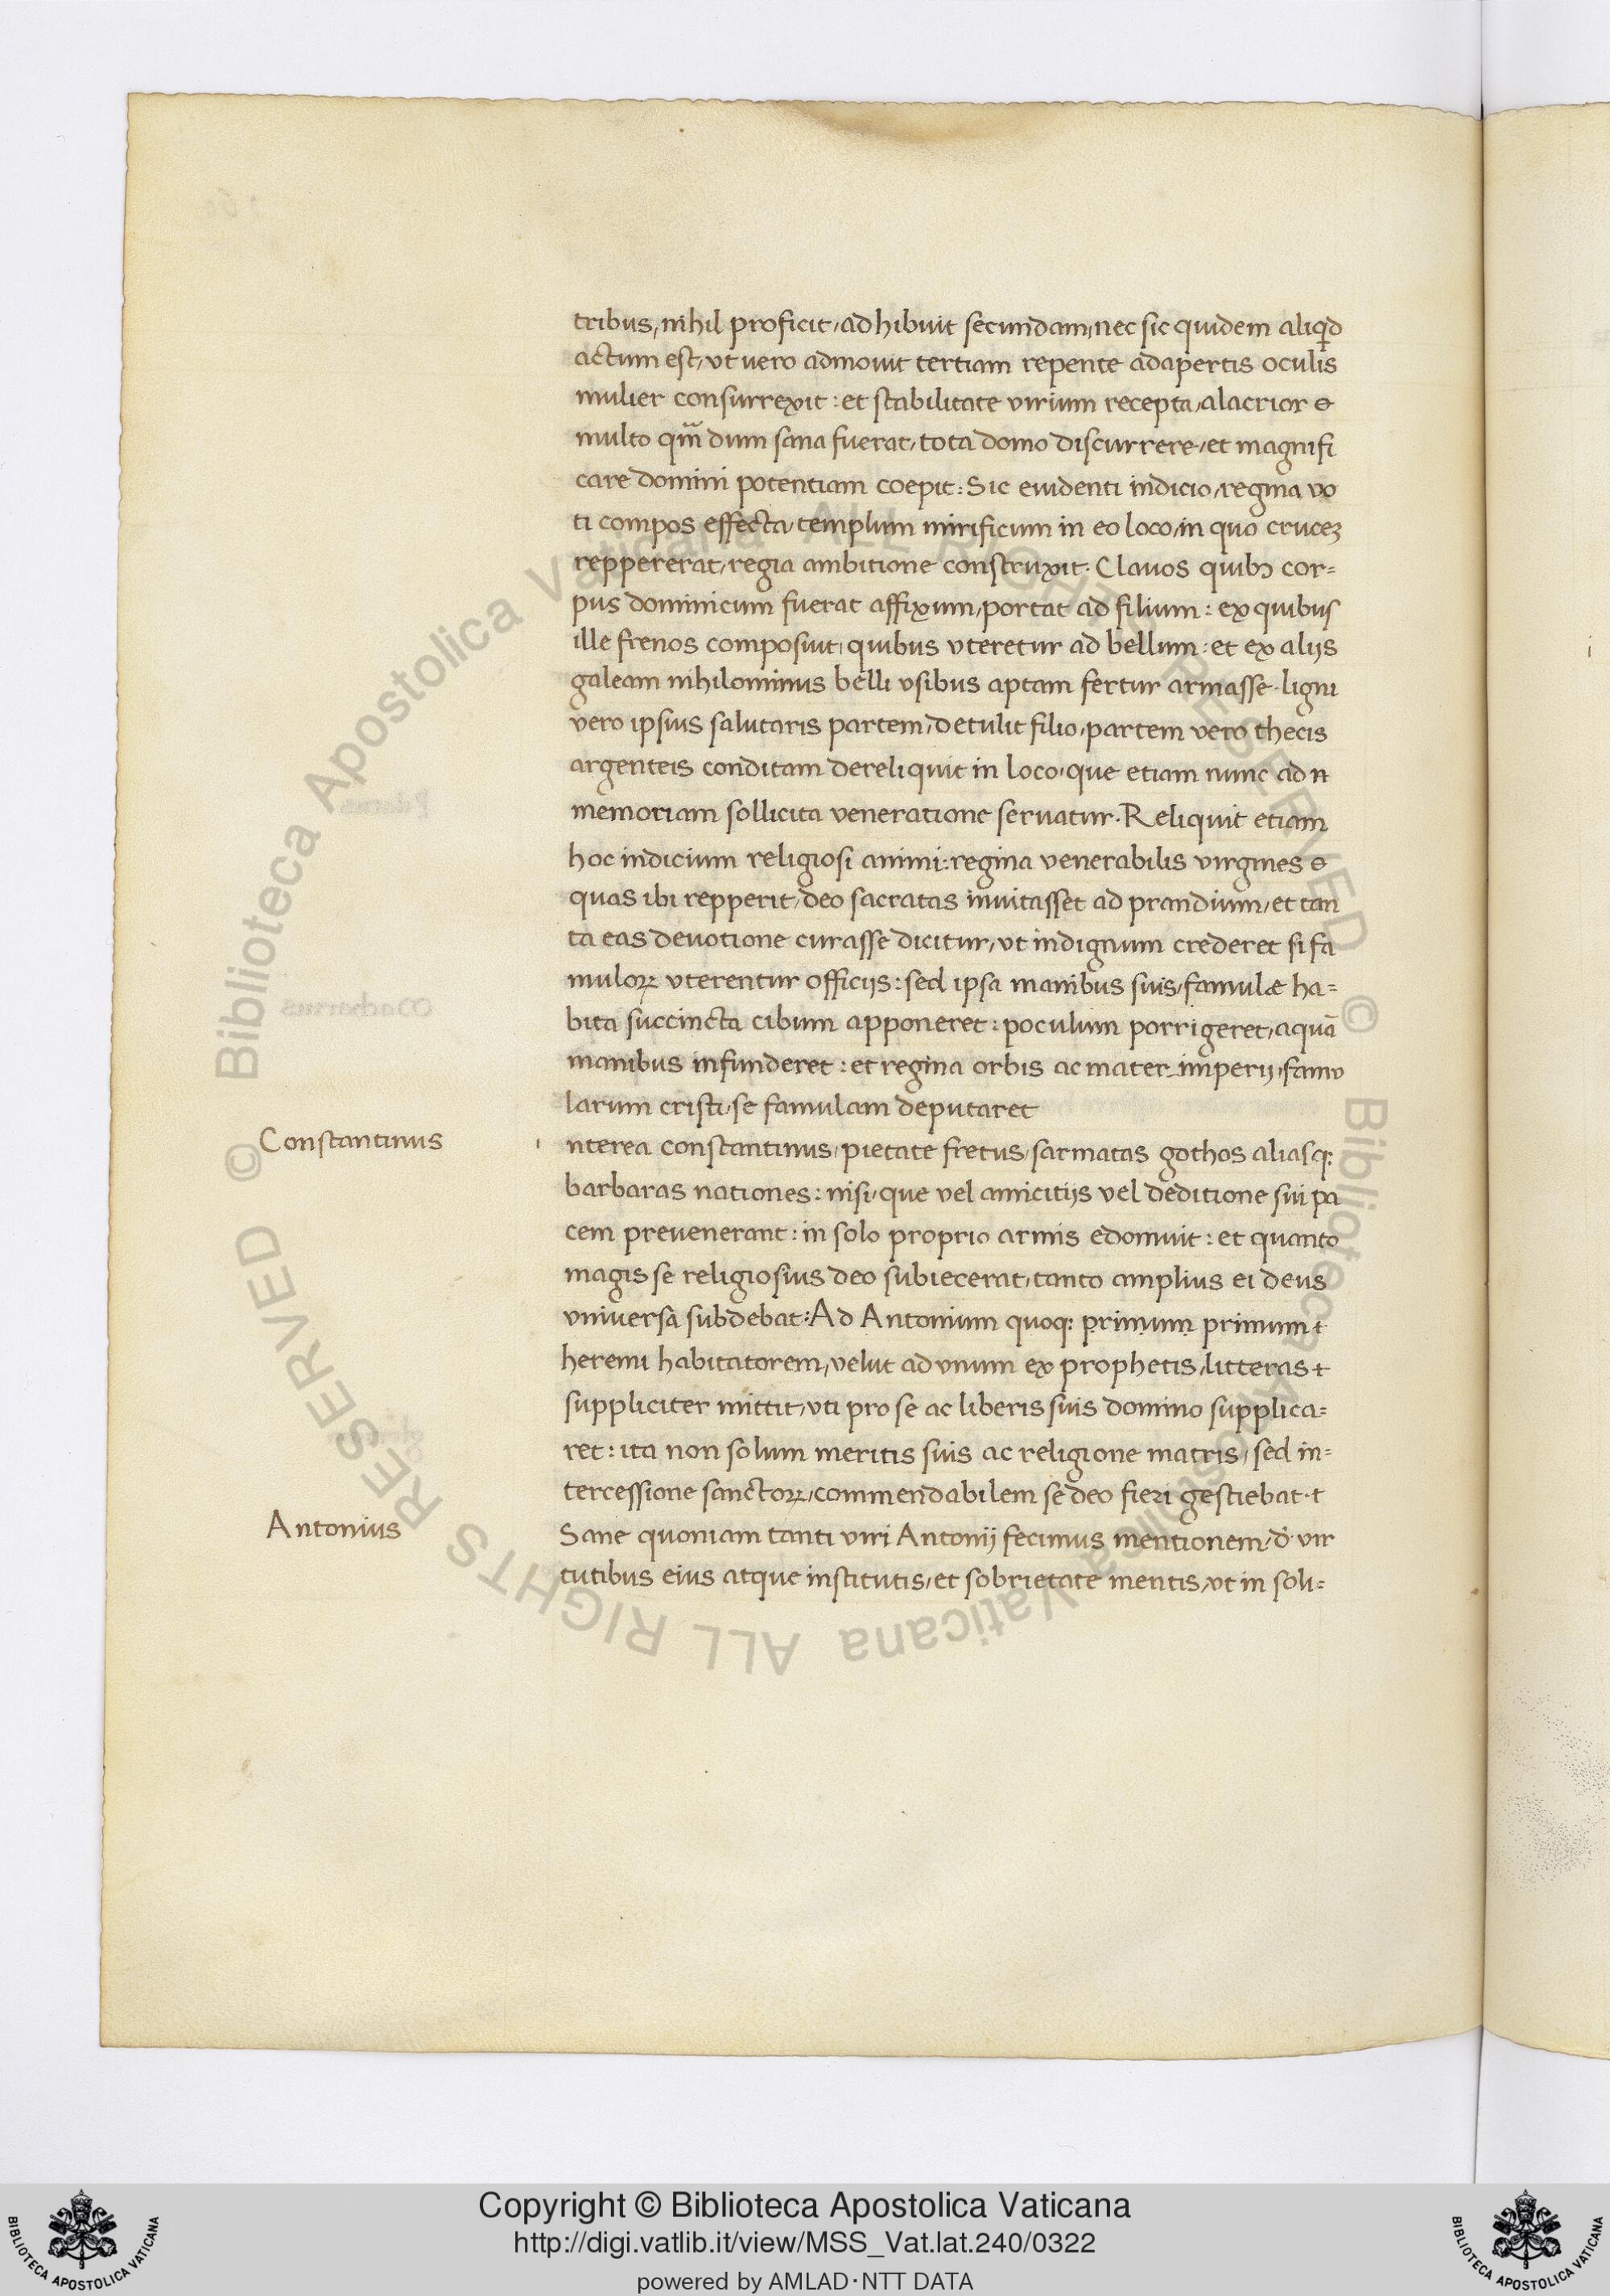 tribus, nihil proficit, adhibuit secundam, nec sic quidem aliqd
actum est, vt uero admouit tertiam repente adapertis oculis
mulier consurrexit: et stabilitate virium recepta, alacrior
multo qm̄ dum sana fuerat, tota domo discurrere, et magnifi
care domini potentiam coepit: Sic euidenti indicio, regina vo
ti compos effecta, templum mirificum in eo loco, in quo crucez
reppererat, regia ambitione construxit. Clauos quibꝫ cor=
pus dominicum fuerat affixum, portat ad filium: ex quibus
ille frenos composuit, quibus vteretur ad bellum: et ex alijs
galeam nihilominus belli vsibus aptam fertur armasse. ligni
vero ipsius salutaris partem, detulit filio, partem vero thecis
argenteis conditam dereliquit in loco, que etiam nunc ad
memoriam sollicita veneratione seruatur. Reliquit etiam
hoc indicium religiosi animi: regina venerabilis virgines
quas ibi repperit, deo sacratas inuitasset ad prandium, et tan
ta eas deuotione curasse dicitur, vt indignum crederet si fa
muloꝝ vterentur officijs: sed ipsa manibus suis, famulæ ha=
bita succincta cibum apponeret: poculum porrigeret, aquā
manibus infunderet: et regina orbis ac mater imperij, famu
larum cristi, se famulam deputaret
Constantinus
i nterea constantinus, pietate fretus, sarmatas gothos aliasq:
barbaras nationes: nisi, que vel amicitijs vel deditione sui pa
cem preuenerant: in solo proprio armis edomuit: et quanto
magis se religiosius deo subiecerat, tanto amplius ei deus
vniuersa subdebat: Ad Antonium quoq: primum primum
heremi habitatorem, velut ad vnum ex prophetis, litteras
suppliciter mittit, vti pro se ac liberis suis domino supplica=
ret: ita non solum meritis suis ac religione matris, sed in=
tercessione sanctoꝝ, commendabilem se deo fieri gestiebat.
Antonius
Sane quoniam tanti viri Antonij fecimus mentionem, d̄ vir
tutibus eius atque institutis, et sobrietate mentis, vt in soli=
© Biblioteca Apostolica Vaticana ALL RIGHTS RESERVED © Biblioteca Apostolica Vaticana ALL RIGHTS RESERVED
Copyright © Biblioteca Apostolica Vaticana
http://digi.vatlib.it/view/MSS_Vat.lat.240/0322
powered by AMLAD·NTT DATA
BIBLIOTECA APOSTOLICA VATICANA
BIBLIOTECA APOSTOLICA VATICANA